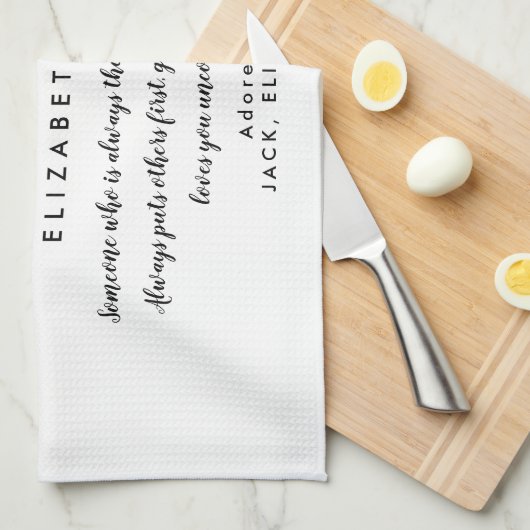 ELIZABET
Someone who is always the
Always puts others first, g
loves you unco
Adore
JACK, ELI